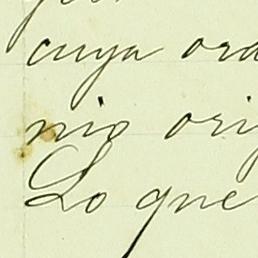 cuya ord
nio orig
Lo que